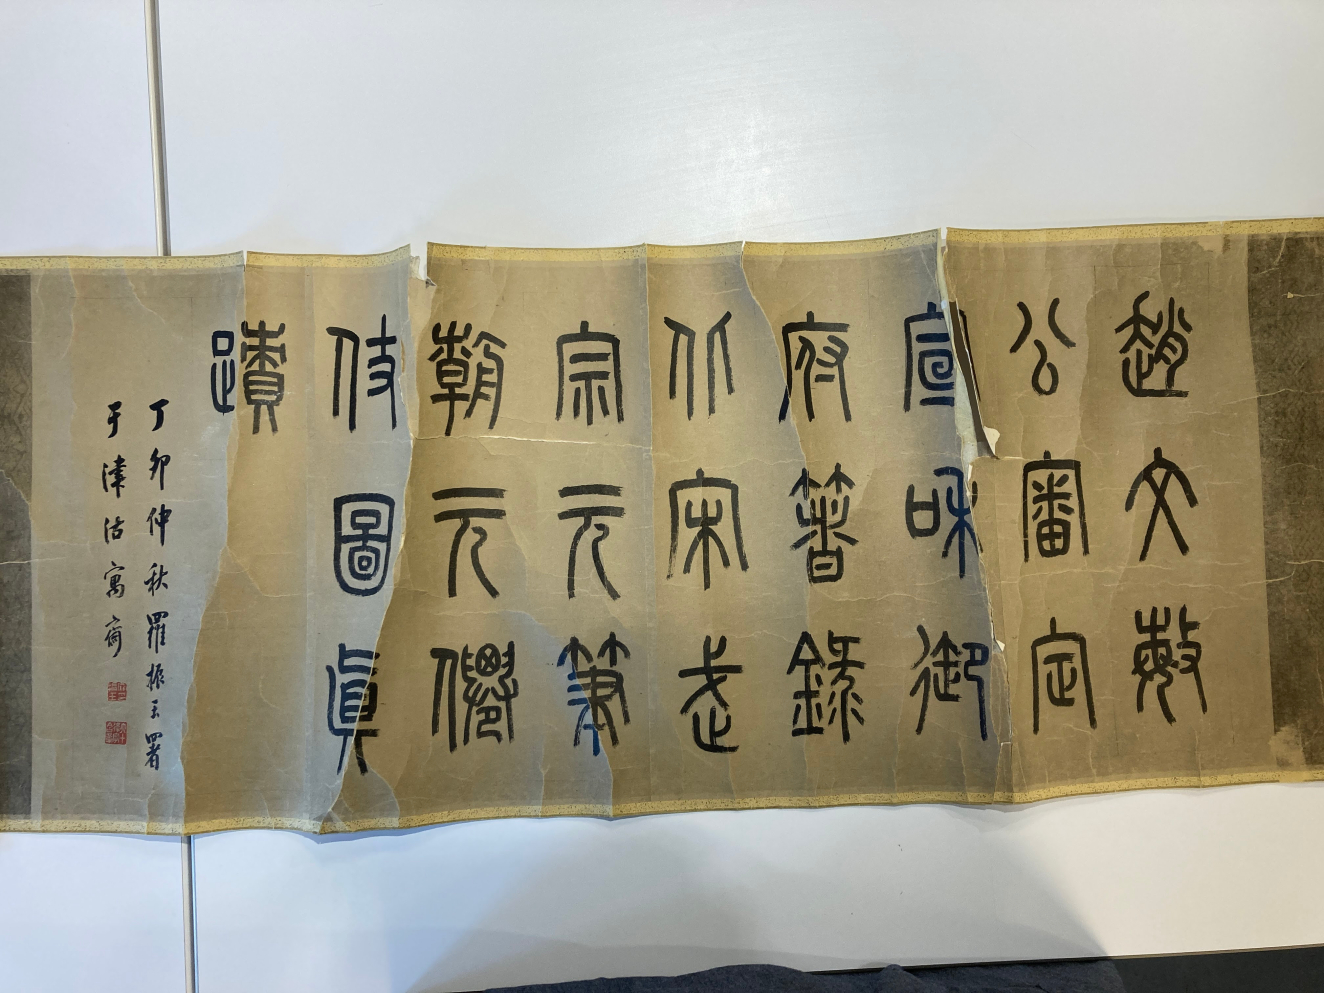 趙文敏
公審定
宣和御
府箸錄
北宋武
宗元筆
朝元僊
仗圖眞
蹟
丁卯仲秋羅振玉署
于津沽寓齋